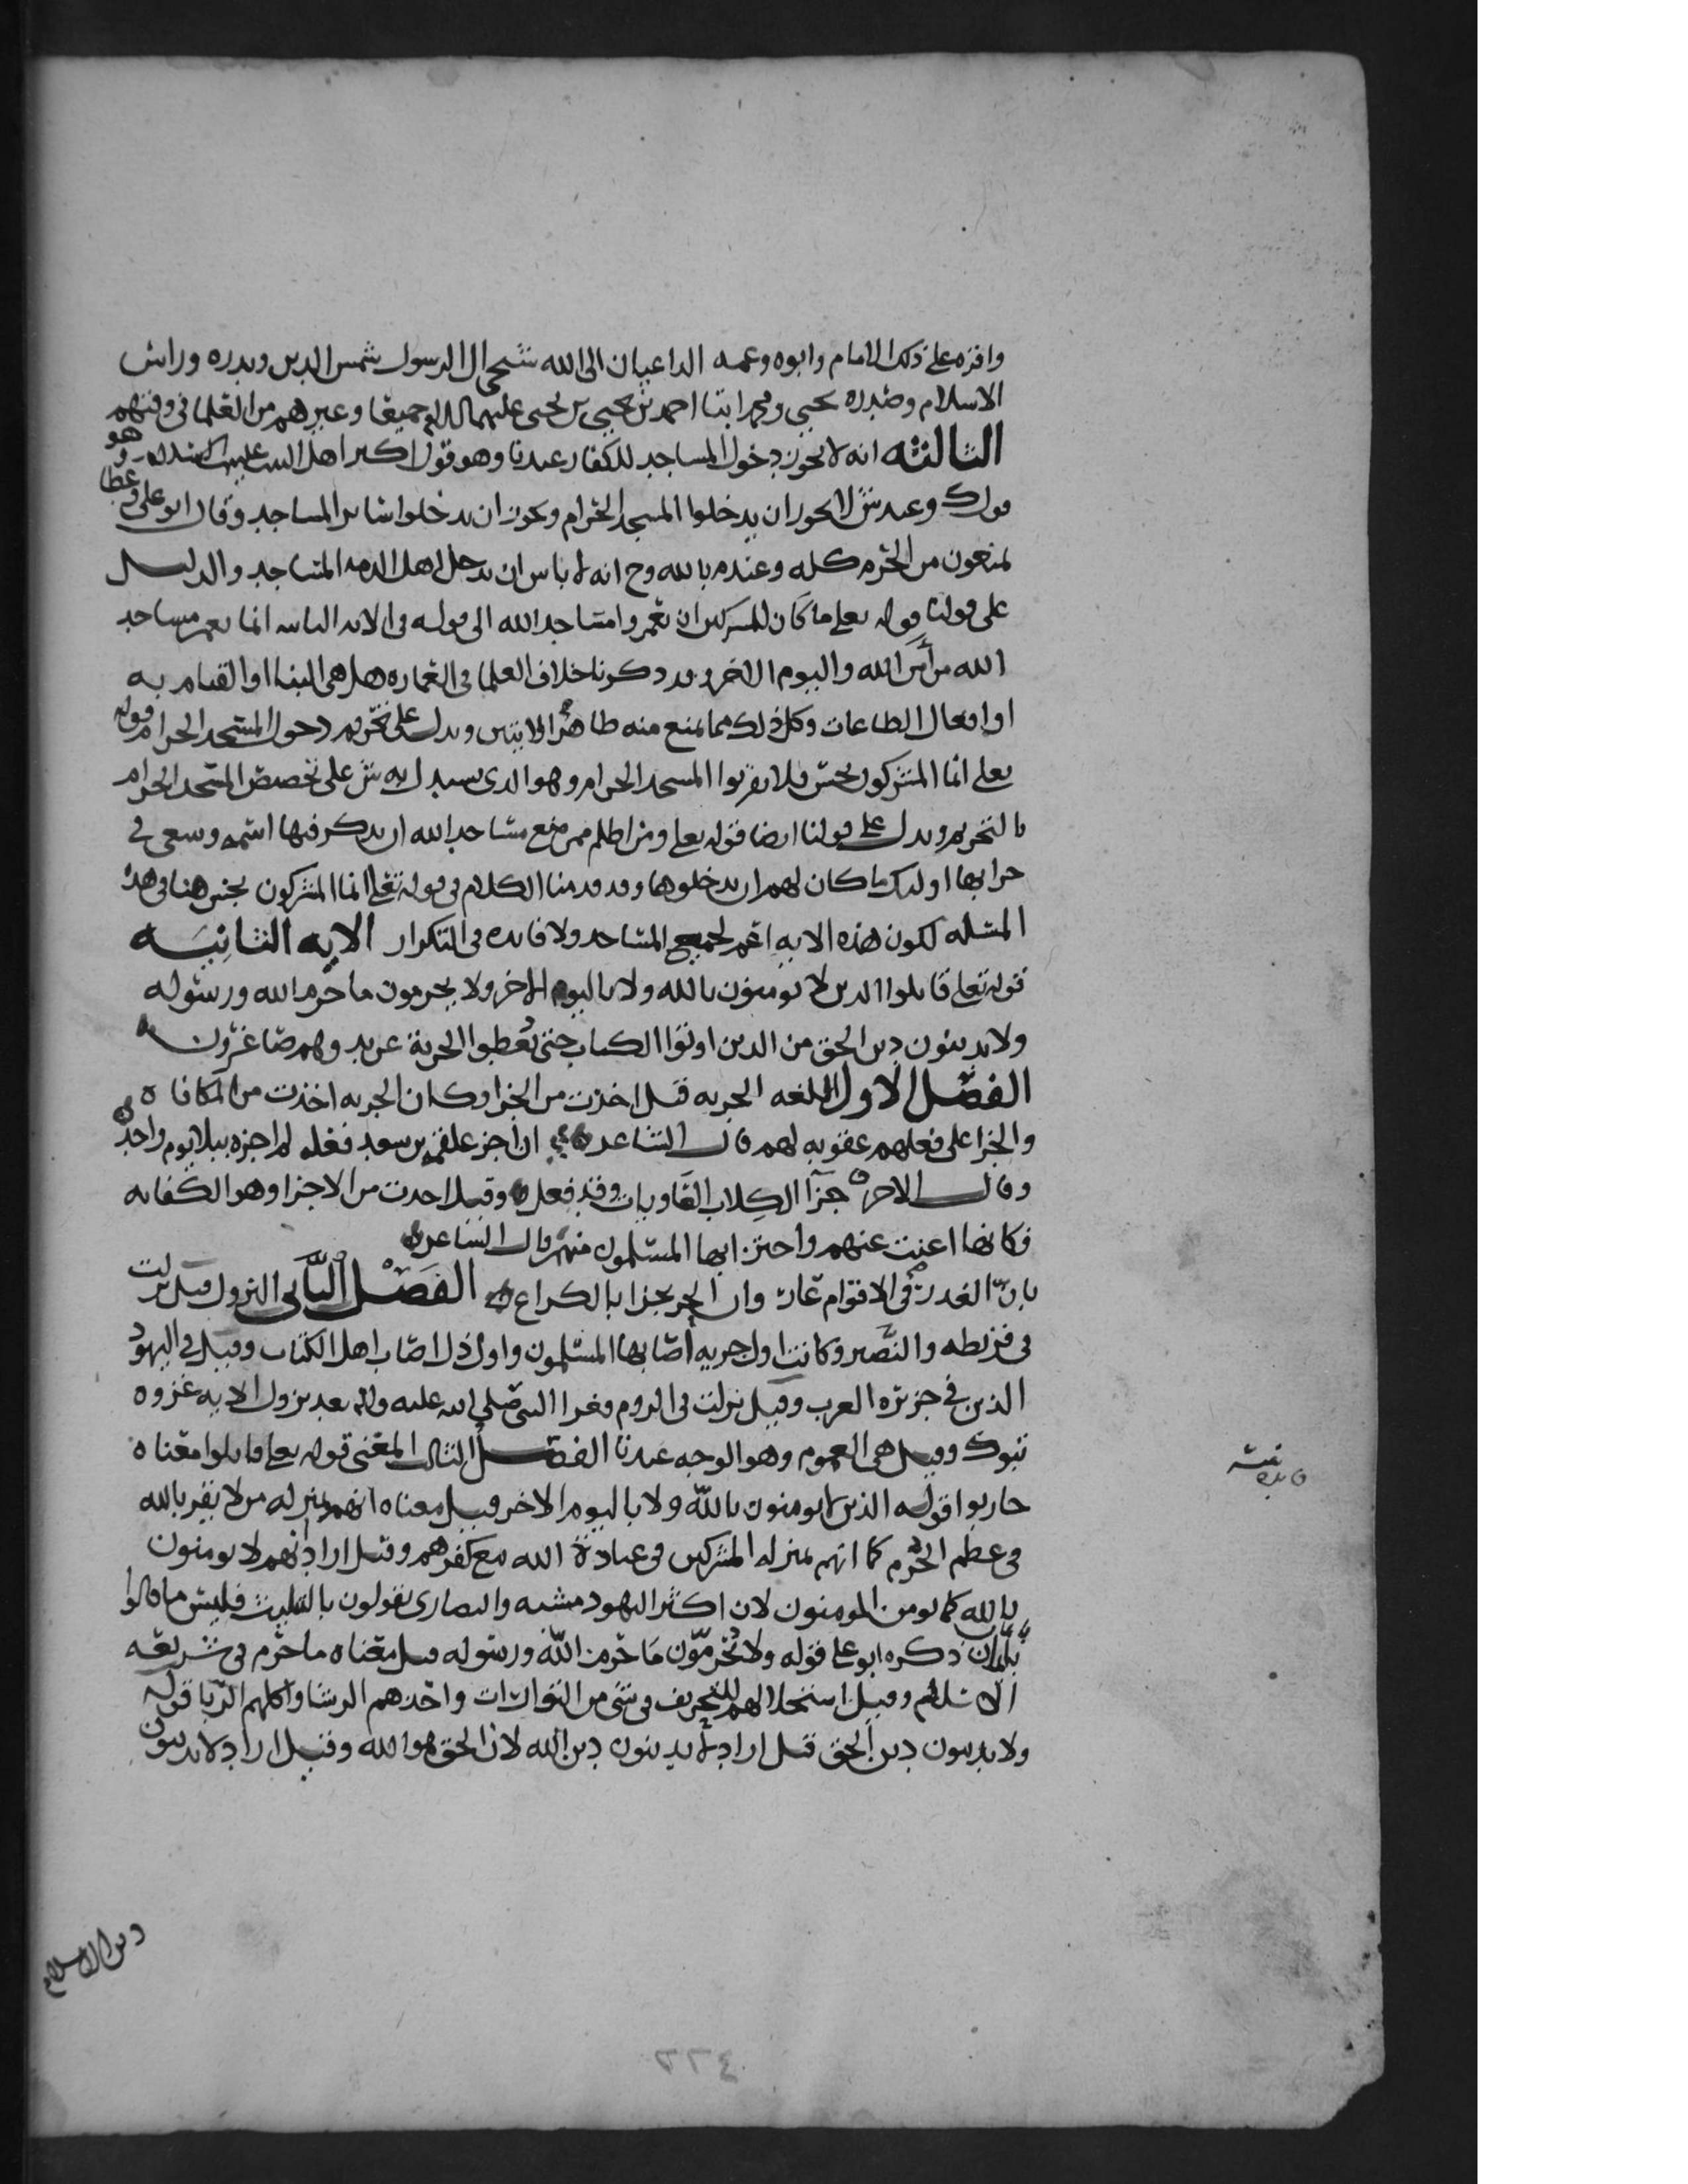 واقره على ذلك الامام وابوه وعمه الداعيان الى الله شيخي ال الرسول شمس الدين وبدره وراس
الاسلام وصدره يحيى ومحمد ابنا احمد بن يحيى بن يحيى عليهم السلام جميعا وغيرهم من العلما في وقتهم
الثالثه انه لا يجوز دخول المساجد للكفار عندنا وهو قول اكثر اهل البيت عليهم السلام وهو
قول ك وعند ش لا يجوز ان يدخلوا المسجد الحرام ويجوز ان يدخلوا سائر المساجد وقال ابو علي وعطا
يمنعون من الحرم كله وعند م بالله وح انه لا باس ان يدخل اهل الذمه المساجد والدليل
على قولنا قوله تعلى ما كان للمشركين ان يعمروا مساجد الله الى قوله في الايه الثانيه انما يعمر مساجد
الله من آمن بالله واليوم الاخر وقد ذكرنا خلاف العلما في العماره هل هي البنا او القيام به
او افعال الطاعات وكل ذلك مما يمنع منه ظاهر الايتين ويدل على تحريم دخول المسجد الحرام قوله
تعلى انما المشركون نجس فلا يقربوا المسجد الحرام وهو الذي يستدل به ش على تخصيص المسجد الحرام
بالتحريم ويدل على قولنا ايضا قوله تعلى ومن اظلم ممن منع مساجد الله ان يذكر فيها اسمه وسعى في
خرابها اولئك ما كان لهم ان يدخلوها وقد قدمنا الكلام في قوله تعلى انما المشركون نجس هنا في هذه
المسله لكون هذه الايه اعم لجميع المساجد ولا فايده في التكرار الايه الثانيه
قوله تعلى قاتلوا الذين لا يومنون بالله ولا باليوم الاخر ولا يحرمون ما حرم الله ورسوله
ولا يدينون دين الحق من الذين اوتوا الكتاب حتى يعطوا الجزية عن يد وهم صاغرون
الفصل الاول اللغه الجزيه قيل اخذت من الجزا وكان الجزيه اخذت من المكافاه
والجزا على فعلهم عقوبه لهم قال الشاعر ان اجز علقمه بن سعد فعله لم اجزه ببلا يوم واحد
وقال الاخر جزآ الكلاب العاويات وقد فعل وقيل اخذت من الاجزا وهو الكفايه
فكانها اغنت عنهم واجتزا بها المسلمون منهم قال الشاعر
بان الغدر في الاقوام عار وان الحر يجزا بالكراع الفصل الثاني النزول قيل نزلت
في قريظه والنضير وكانت اول جزيه اصابها المسلمون واول ذل اصاب اهل الكتاب وقيل في اليهود
الذين في جزيره العرب وقيل نزلت في الروم وغزا النبي صلى الله عليه واله بعد نزول الايه غزوه
تبوك وقيل هي العموم وهو الوجه عندنا الفصل الثالث المعنى قوله تعلى قاتلوا معناه
حاربوا قوله الذين لا يومنون بالله ولا باليوم الاخر قيل معناه انهم بمنزله من لا يقر بالله
في عظم الجرم كما انهم بمنزله المشركين في عبادة الله مع كفرهم وقيل اراد انهم لا يومنون
بالله كما يومن المومنون لان اكثر اليهود مشبه والنصارى يقولون بالتثليث فليس ما قالوا
بايمان ذكره ابو علي قوله ولا يحرمون ما حرم الله ورسوله قيل معناه ما حرم في شريعه
الاسلام وقيل استحلالهم للتحريف في شي من التورات واخذهم الرشا واكلهم الربا قوله
ولا يدينون دين الحق قيل اراد لا يدينون دين الله لان الحق هو الله وقيل اراد لا يدينون
دين الاسلام